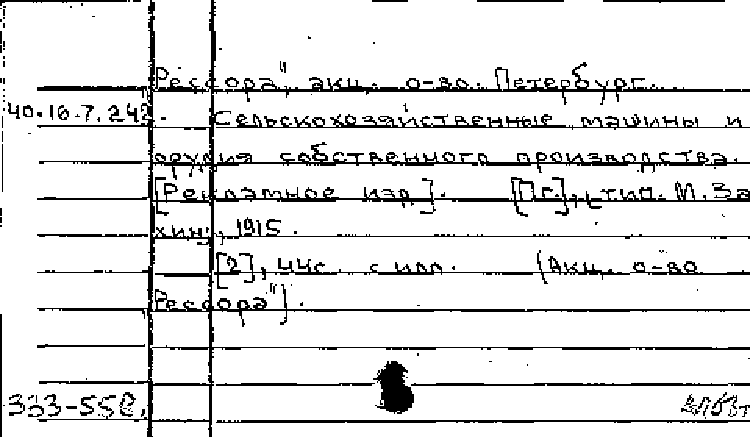 Рессора", акц. о-во. Петербург.
40.16.7.242. Сельскохозяйственные машины и
орудия собственного производства.
[Рекламное изд.]. [Пг.], тип. М. За
хин, 1915.
[2], 44с. с илл. (Акц. о-во
Рессора").
333-55е.